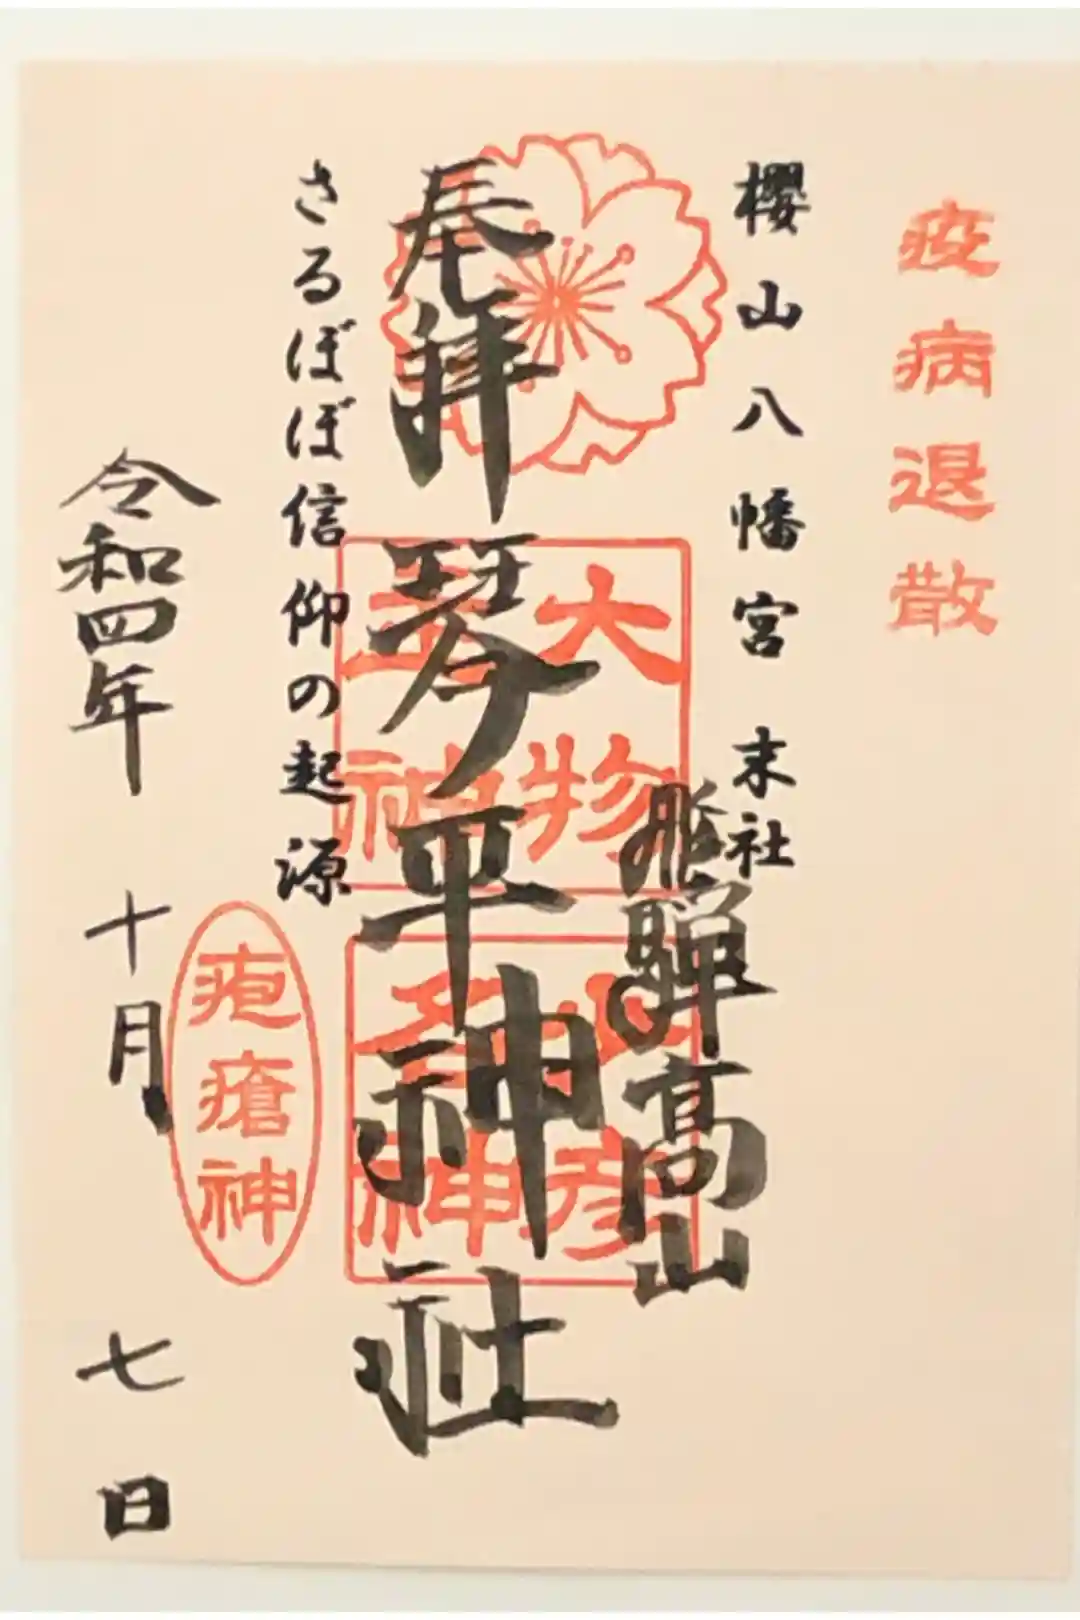 疫病退散
櫻山八幡宮 末社
飛騨高山
奉拝
琴平神社
大物主神
少彦名神
さるぼぼ信仰の起源
疱瘡神
令和四年 十月 七日